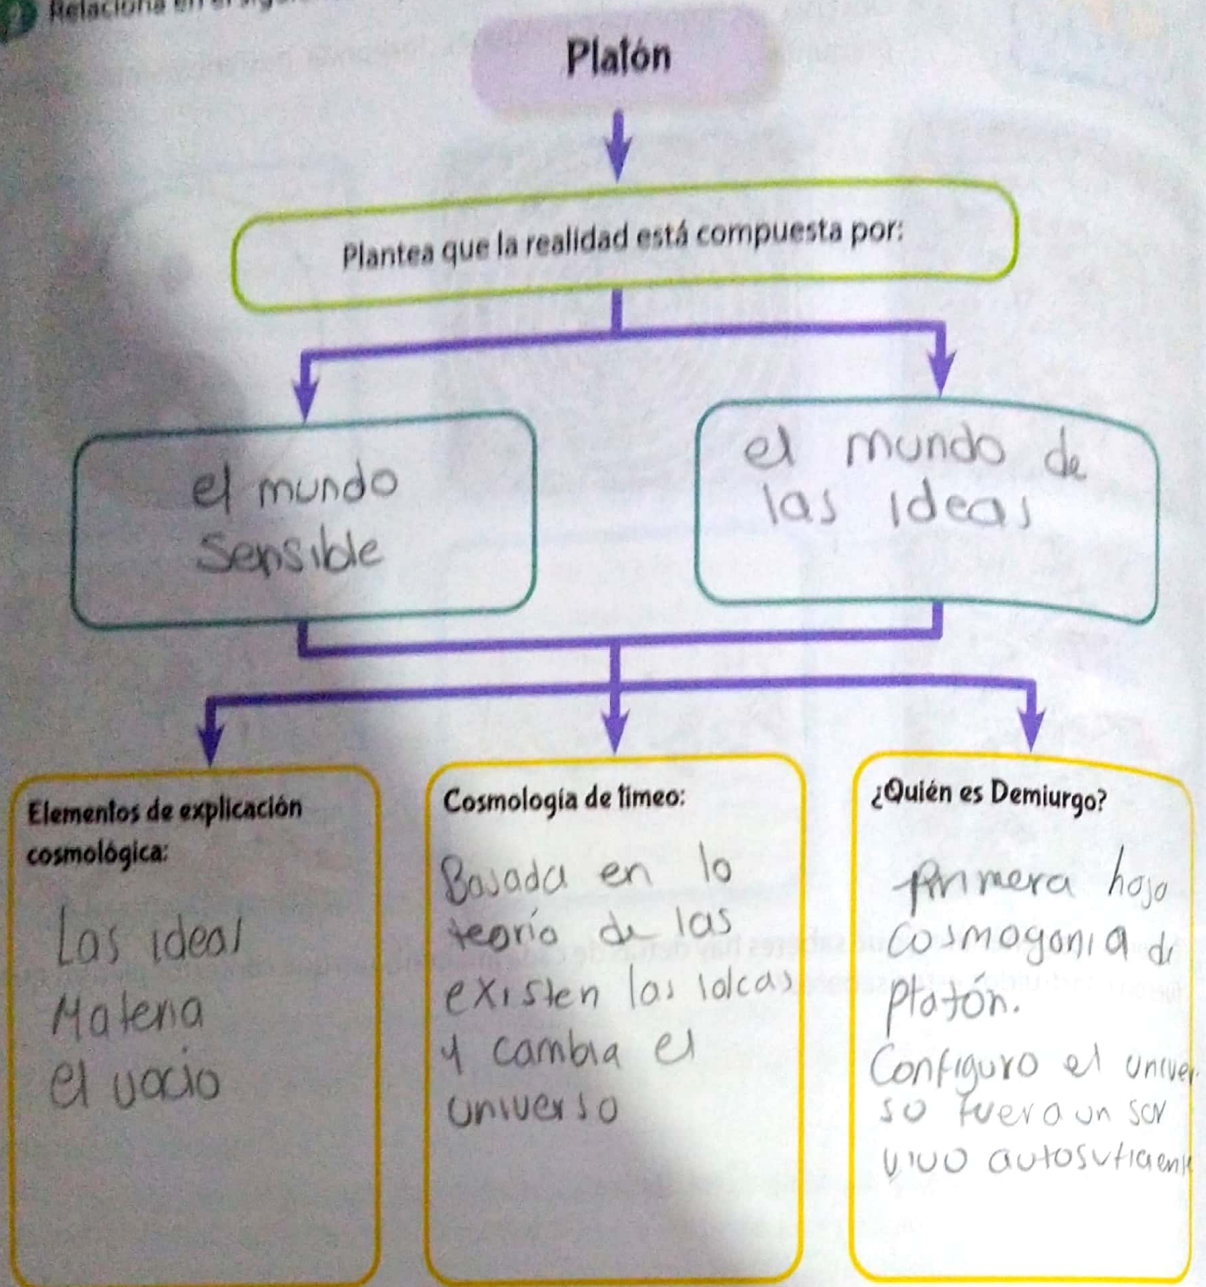 Relaciona en el
Platón
Plantea que la realidad está compuesta por:
el mundo
sensible
el mundo de
las ideas
Elementos de explicación
cosmológica:
Las ideas
Materia
el vacio
Cosmología de timeo:
Basada en la
teoría de las
existen las ideas
y cambia el
universo
¿Quién es Demiurgo?
primera hoja
cosmogonia de
platón.
Configuro el univer
so fuera un ser
vivo autosuficiente